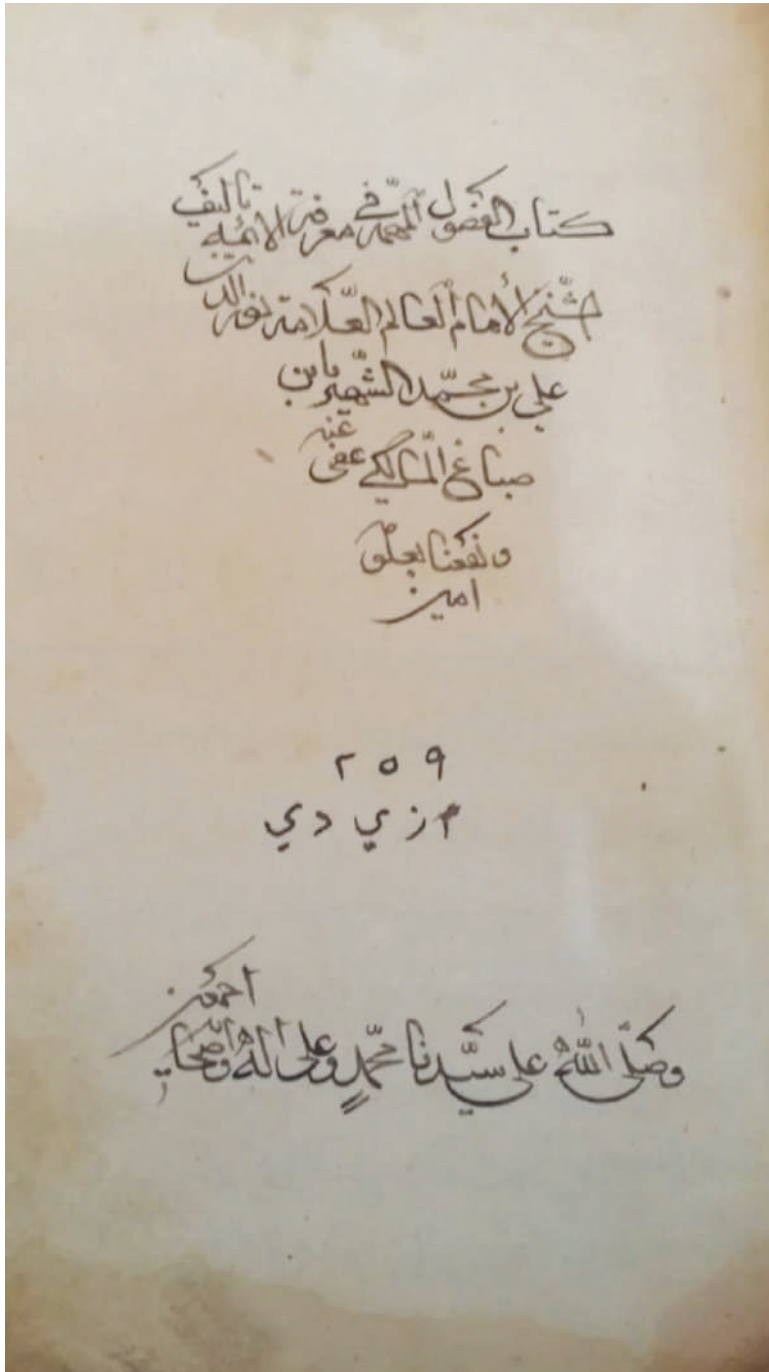 كتاب الفصول المهمة في معرفة الائمه تاليف
الشيخ الأمام العالم العلامة نور الدين
علي بن محمد الشهير بابن
صباغ المالكي عفى عنه
ونفعنا بعلمه
امين
٢٥٩
وصلى الله على سيدنا محمد وعلى اله وأصحابه اجمعين